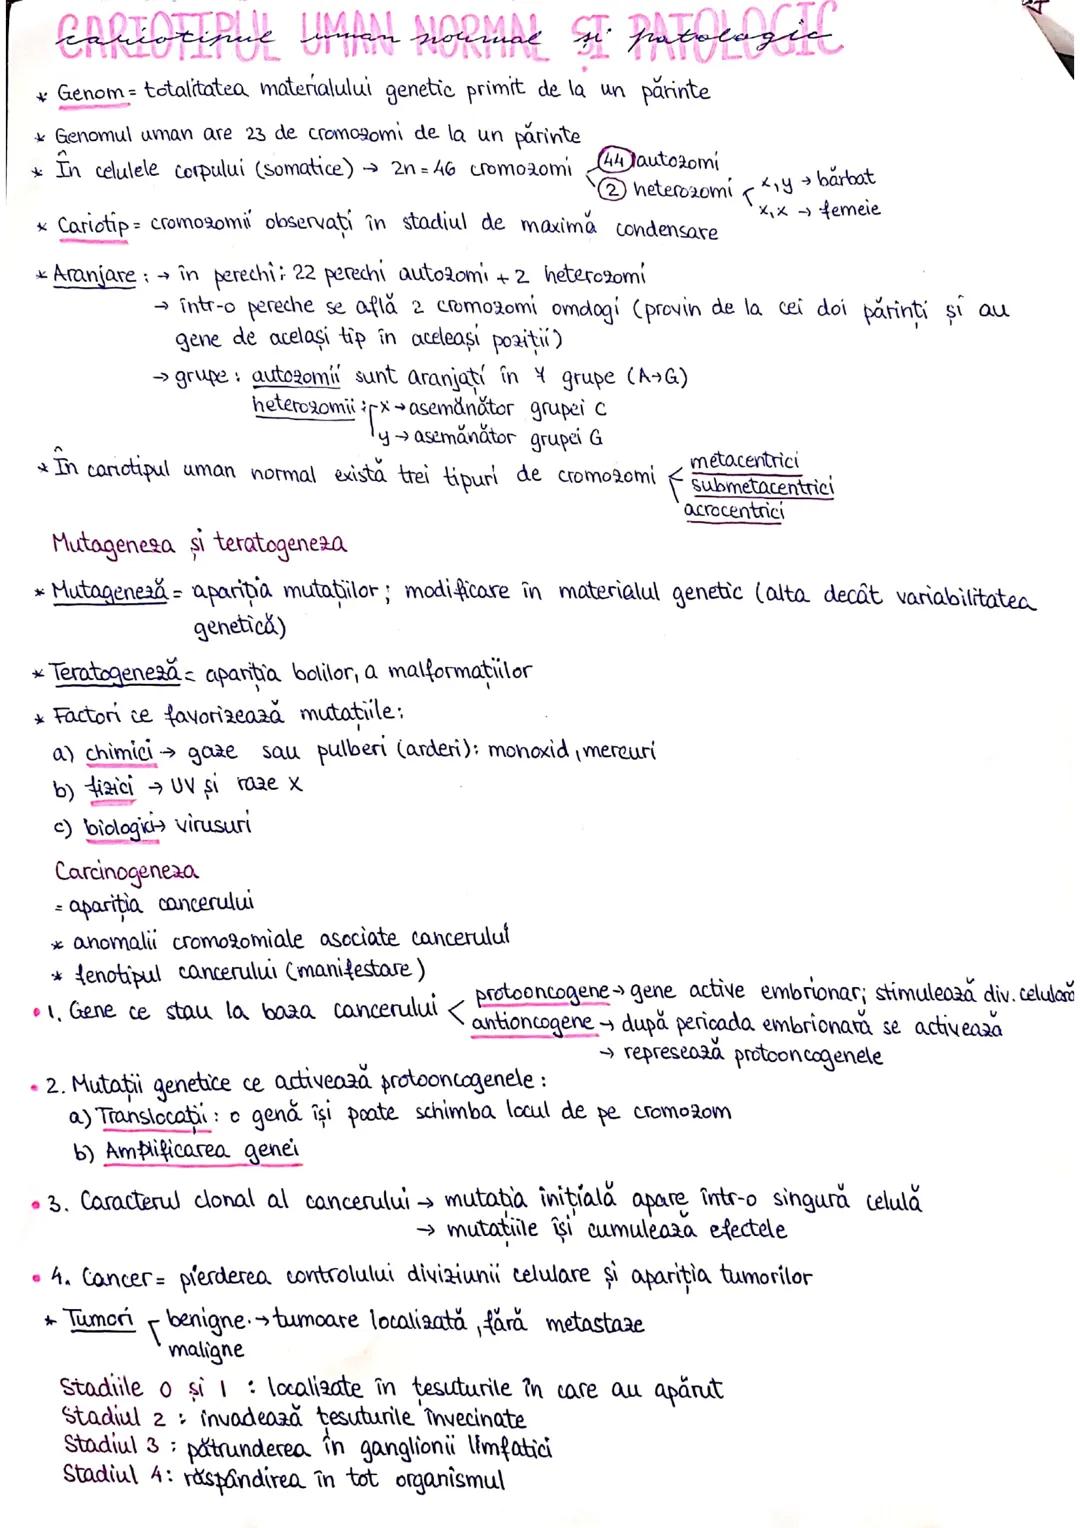 CARIOTIPUL UMAN NORMAL ȘI PATOLOGIC
cariotipul uman normal și patologic
* Genom = totalitatea materialului genetic primit de la un părinte
* Genomul uman are 23 de cromozomi de la un părinte
* În celulele corpului (somatice) → 2n = 46 cromozomi
44 autozomi
2 heterozomi
x,y → bărbat
x,x → femeie
* Cariotip = cromozomii observați în stadiul de maximă condensare
* Aranjare : → în perechi: 22 perechi autozomi + 2 heterozomi
→ într-o pereche se află 2 cromozomi omologi (provin de la cei doi părinți și au
gene de același tip în aceleași poziții)
→ grupe : autozomii sunt aranjați în 7 grupe (A→G)
heterozomii : x → asemănător grupei C
y → asemănător grupei G
* În cariotipul uman normal există trei tipuri de cromozomi
metacentrici
submetacentrici
acrocentrici
Mutageneza și teratogeneza
* Mutageneză = apariția mutațiilor ; modificare în materialul genetic (alta decât variabilitatea
genetică)
* Teratogeneză = apariția bolilor, a malformațiilor
* Factori ce favorizează mutațiile :
a) chimici → gaze sau pulberi (arderi): monoxid, mercuri
b) fizici → UV și raze X
c) biologici → virusuri
Carcinogeneza
= apariția cancerului
* anomalii cromozomiale asociate cancerului
* fenotipul cancerului (manifestare)
• 1. Gene ce stau la baza cancerului
protooncogene → gene active embrionar; stimulează div. celulară
antioncogene → după perioada embrionară se activează
→ represează protooncogenele
• 2. Mutații genetice ce activează protooncogenele :
a) Translocații : o genă își poate schimba locul de pe cromozom
b) Amplificarea genei
• 3. Caracterul clonal al cancerului → mutația inițială apare într-o singură celulă
→ mutațiile își cumulează efectele
• 4. Cancer = pierderea controlului diviziunii celulare și apariția tumorilor
* Tumori
benigne → tumoare localizată, fără metastaze
maligne
Stadiile 0 și 1 : localizate în țesuturile în care au apărut
Stadiul 2 : invadează țesuturile învecinate
Stadiul 3 : pătrunderea în ganglionii limfatici
Stadiul 4: răspândirea în tot organismul